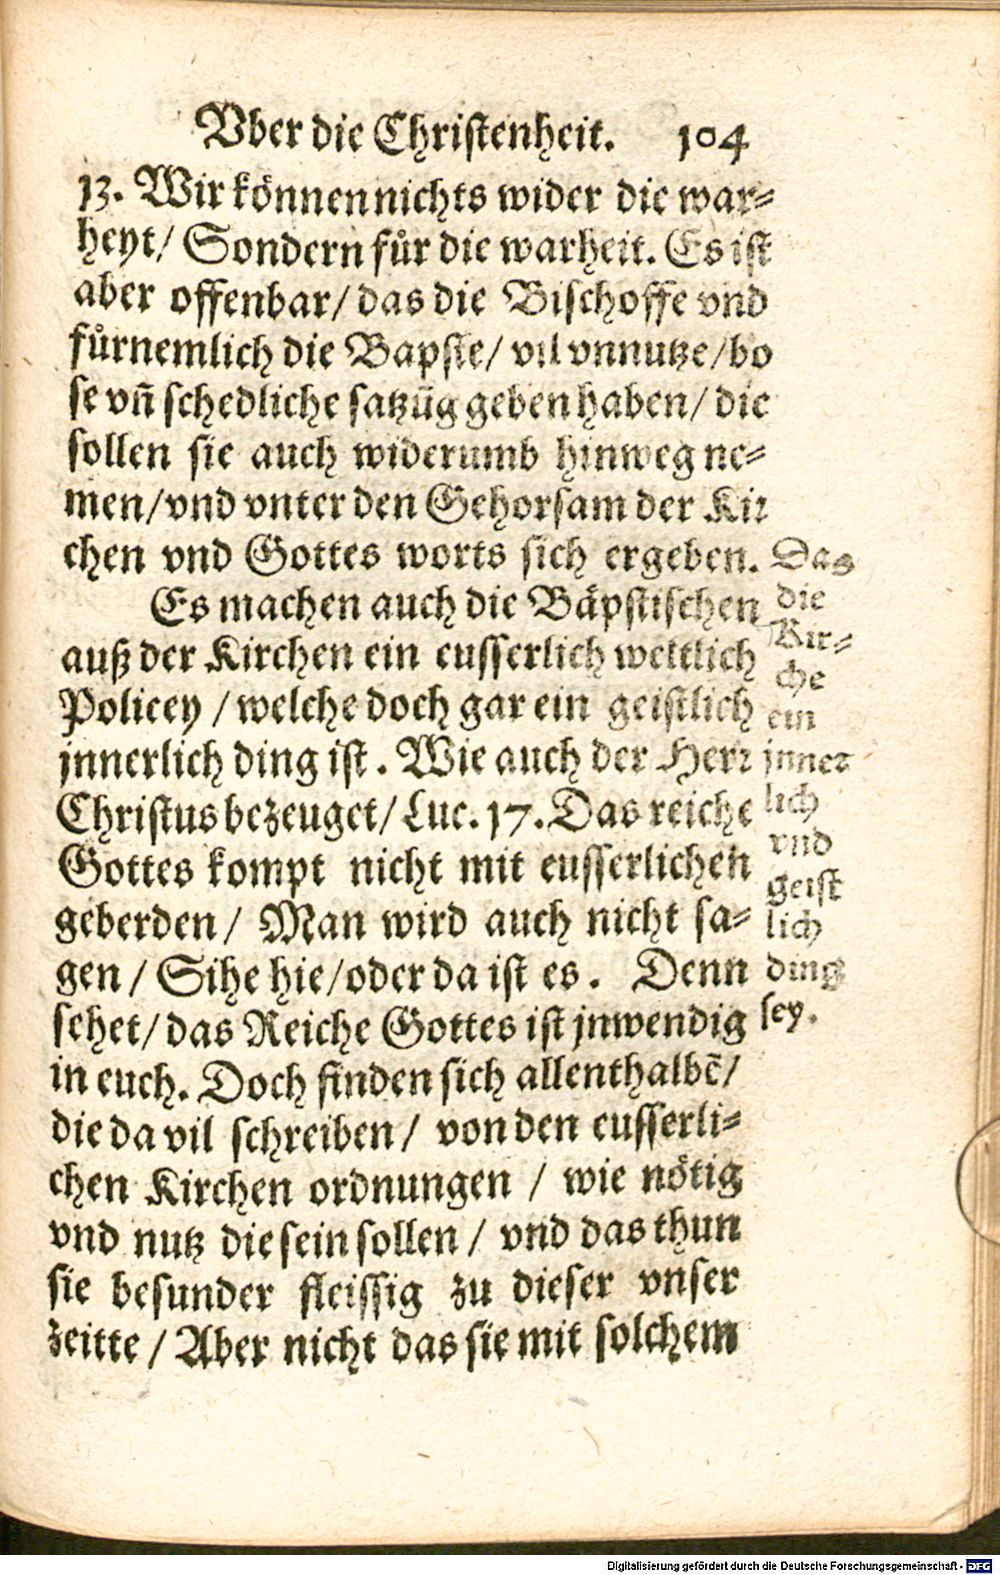 Vber die Christenheit. 104
13. Wir können nichts wider die war-
heyt/ Sondern fůr die warheit. Es ist
aber offenbar/ das die Bischoffe vnd
fůrnemlich die Bapste/ vil vnnutze/ bo
se vñ schedliche satzūg geben haben/ die
sollen sie auch widerumb hinweg ne-
men/ vnd vnter den Gehorsam der Kir
chen vnd Gottes worts sich ergeben.
Es machen auch die Bäpstischen
auß der Kirchen ein eusserlich weltlich
Policey / welche doch gar ein geistlich
jnnerlich ding ist. Wie auch der Herr
Christus bezeuget/ Luc. 17. Das reiche
Gottes kompt nicht mit eusserlichen
geberden/ Man wird auch nicht sa-
gen/ Sihe hie/ oder da ist es. Denn
sehet/ das Reiche Gottes ist jnwendig
in euch. Doch finden sich allenthalbē/
die da vil schreiben/ von den eusserli-
chen Kirchen ordnungen / wie nötig
vnd nutz die sein sollen / vnd das thun
sie besunder fleissig zu dieser vnser
zeitte / Aber nicht das sie mit solchem
Das
die
Kir-
che
ein
jnner
lich
vnd
geist
lich
ding
sey.
Digitalisierung gefördert durch die Deutsche Forschungsgemeinschaft - DFG